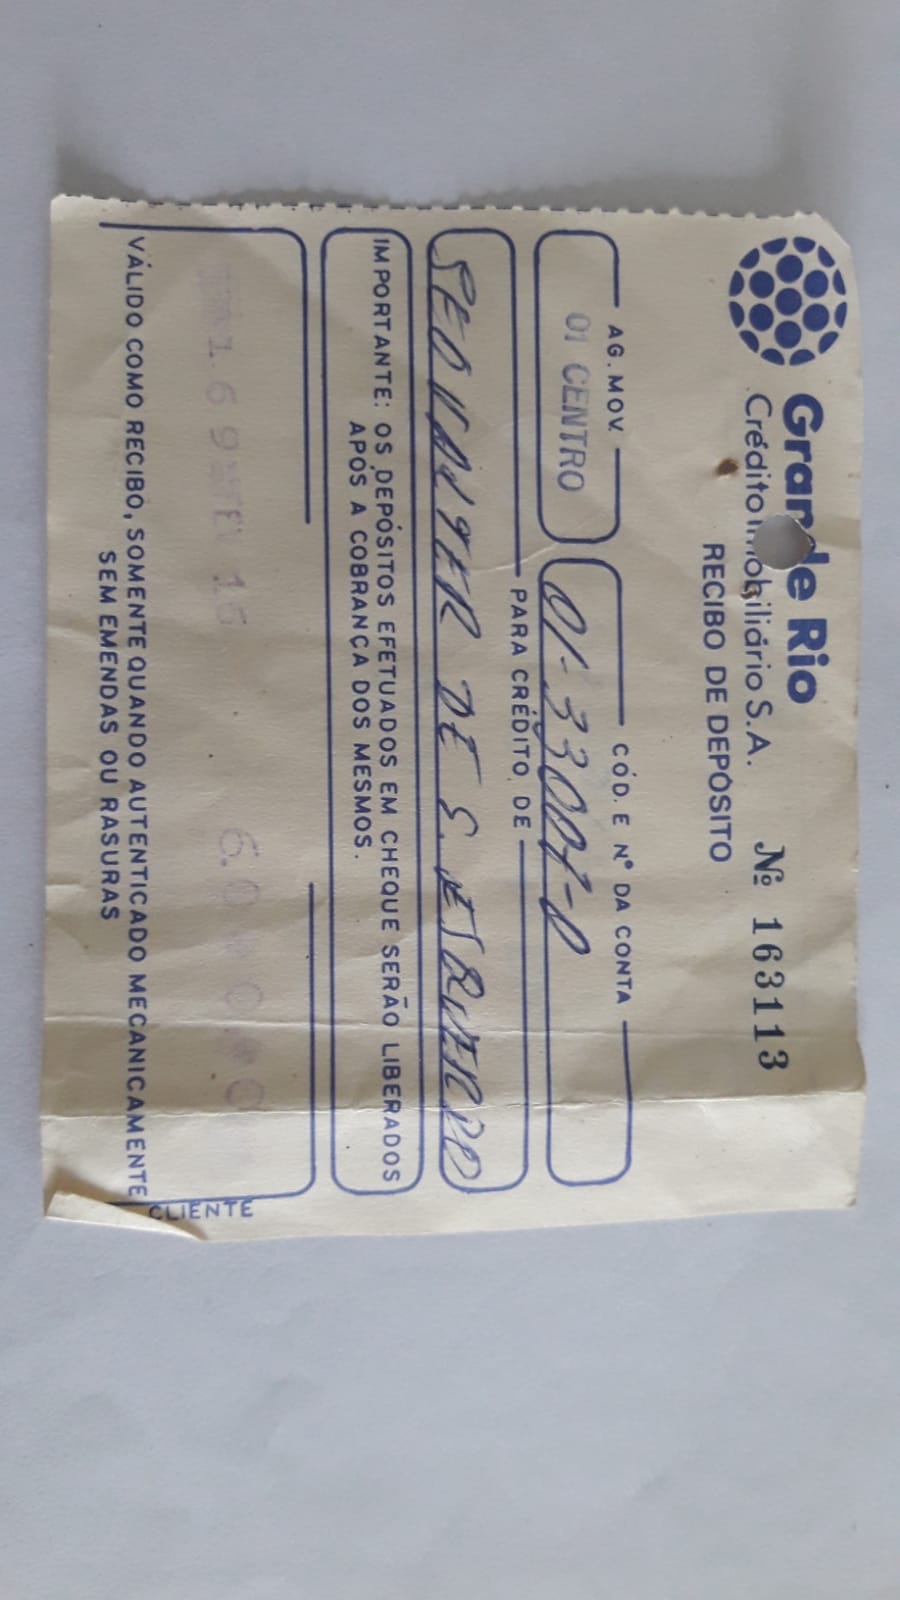 Grande Rio
Crédito Imobiliário S.A. Nº 163113
RECIBO DE DEPÓSITO
AG. MOV. CÓD. E Nº DA CONTA
01 CENTRO 01-33001-0
PARA CRÉDITO DE
DE S. ESQUERDO
IMPORTANTE: OS DEPÓSITOS EFETUADOS EM CHEQUE SERÃO LIBERADOS
APÓS A COBRANÇA DOS MESMOS.
VÁLIDO COMO RECIBO, SOMENTE QUANDO AUTENTICADO MECANICAMENTE
SEM EMENDAS OU RASURAS
CLIENTE